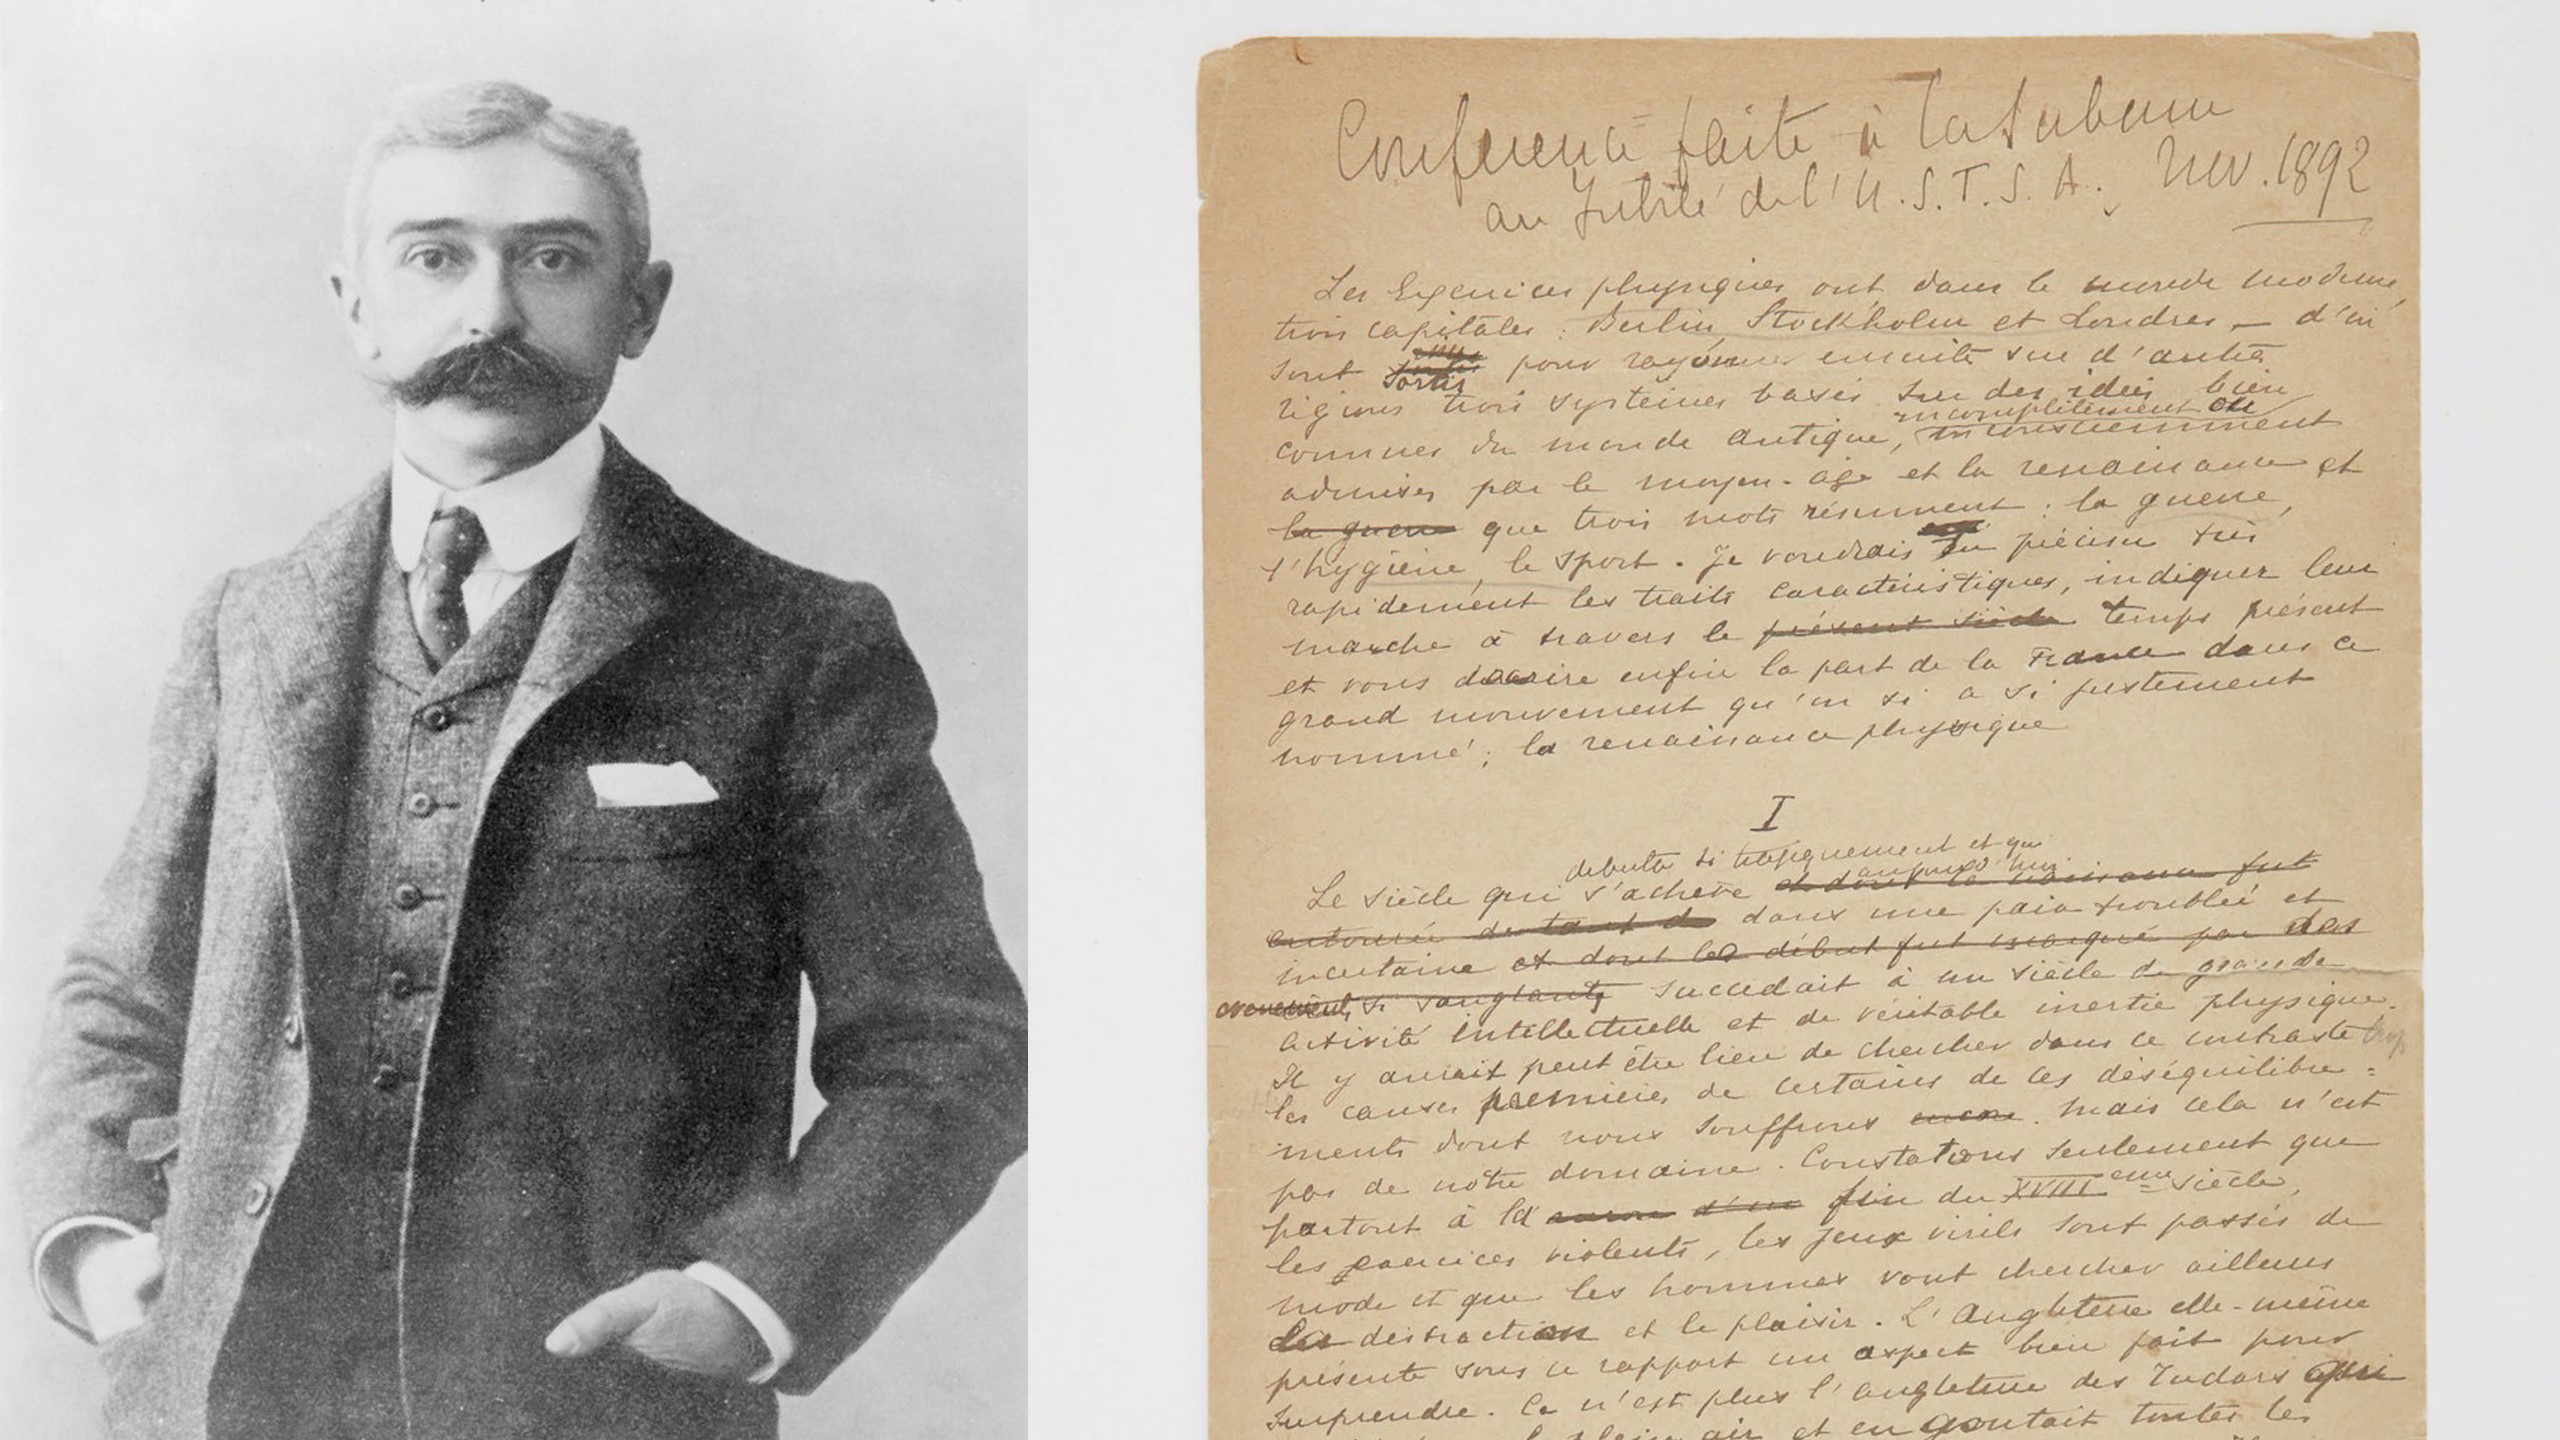 Conférence faite à la Sorbonne
au Jubilé de l'U.S.F.S.A. Nov. 1892
Les Exercices physiques ont dans le monde moderne
trois capitales : Berlin, Stockholm et Londres, — d'où
sont sortis pour rayonner ensuite sur d'autres
régions trois systèmes basés sur des idées bien
incomplètement ou
connues du monde antique, inconsciemment
admises par le moyen-âge et la renaissance et
la guerre que trois mots résument : la guerre,
l'hygiène, le sport. Je voudrais en préciser très
rapidement les traits caractéristiques, indiquer leur
marche à travers le présent siècle temps présent
et vous décrire enfin la part de la France dans ce
grand mouvement qu'on si a si justement
nommé : la renaissance physique
I
débuta si tragiquement et qui
aujourd'hui
Le siècle qui s'achève et dont la naissance fut
entourée de tant de dans une paix troublée et
incertaine et dont les début fut marqué par des
évènements si sanglants succédait à un siècle de grande
activité intellectuelle et de véritable inertie physique.
Il y aurait peut être lieu de chercher dans ce contraste trop
les causes premières de certains de ces déséquilibre=
ments dont nous souffrons encore. Mais cela n'est
pas de nôtre domaine. Constatons seulement que
partout à la fin du XVIIIeme siècle,
les exercices violents, les jeux virils sont passés de
mode et que les hommes vont chercher ailleurs
la distraction et le plaisir. L'Angleterre elle-même
présente sous ce rapport un aspect bien fait pour
surprendre. Ce n'est plus l'angleterre des Tudors qui
plein air et en goutait toutes les